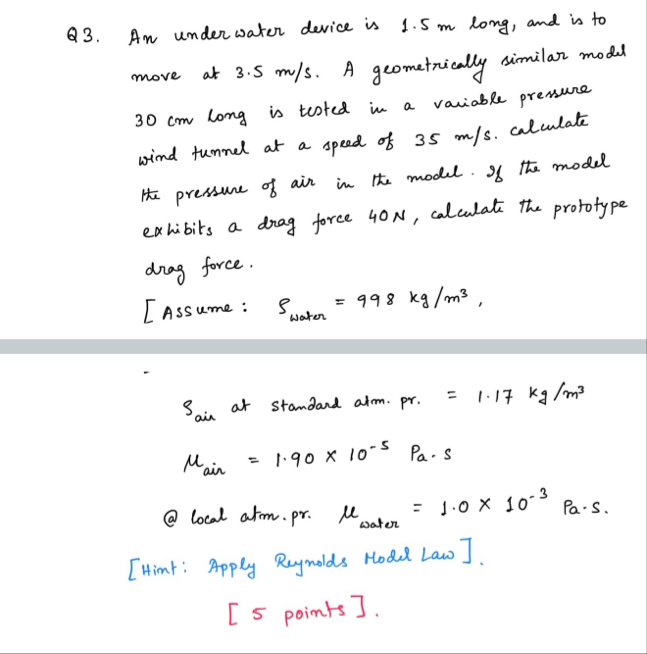 Q3. An underwater device is 1.5 m long, and is to
move at 3.5 m/s. A geometrically similar model
30 cm long is tested in a variable pressure
wind tunnel at a speed of 35 m/s. calculate
the pressure of air in the model. If the model
exhibits a drag force 40N, calculate the prototype
drag force.
[Assume: ρwater = 998 kg/m³,
ρair at standard atm. pr. = 1.17 kg/m³
μair = 1.90 × 10⁻⁵ Pa-s
@ local atm. pr. μwater = 1.0 × 10⁻³ Pa-s.
[Hint: Apply Reynolds Model Law].
[5 points].